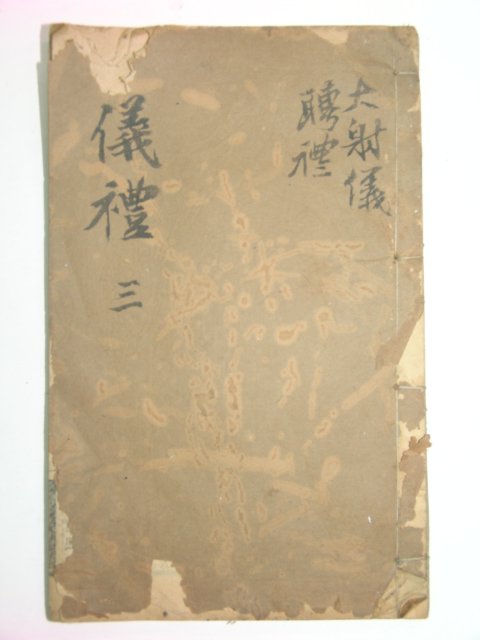 大射儀
聘禮
儀禮 三